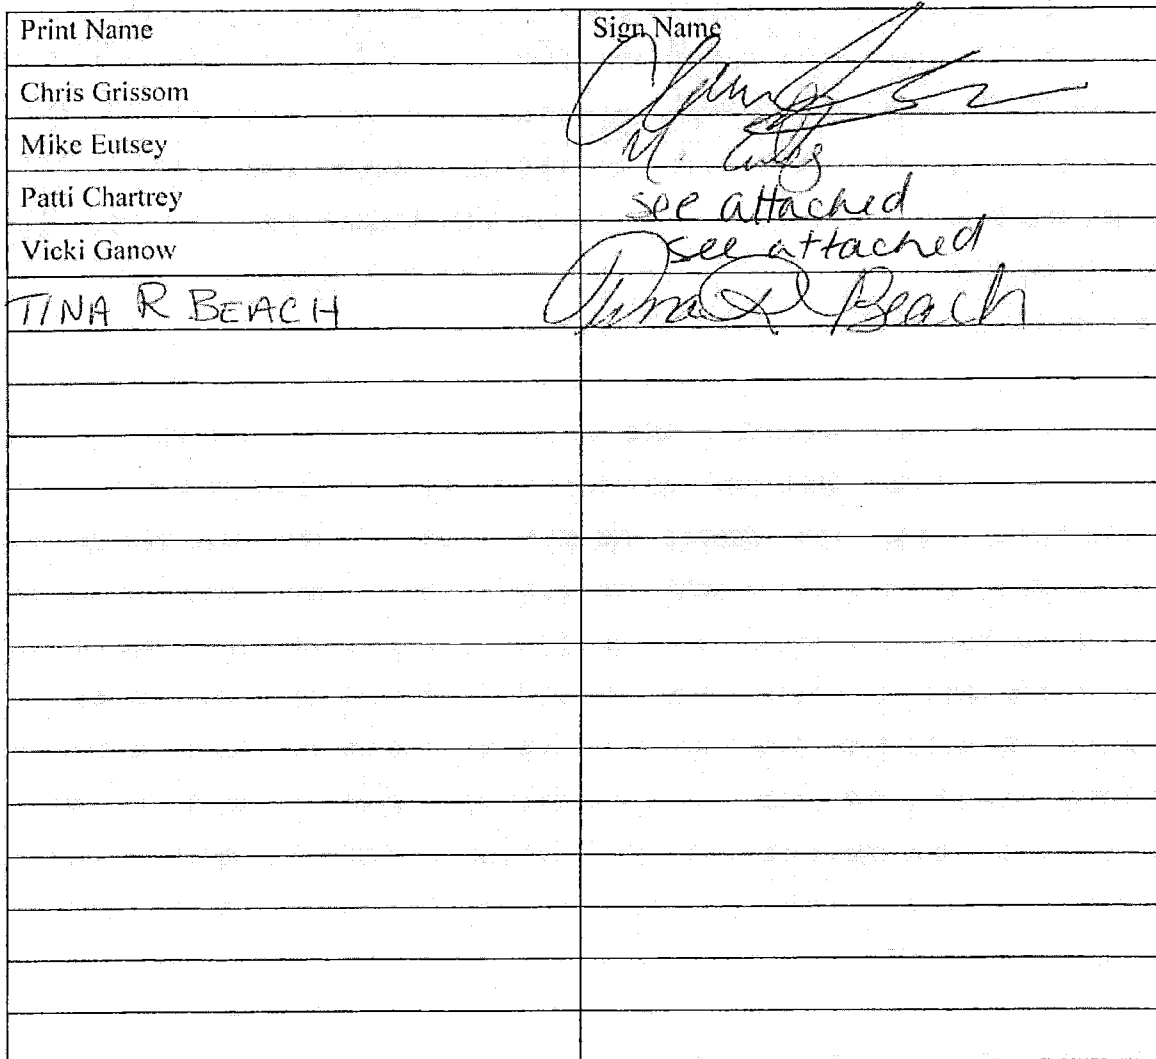 Print Name Sign Name
Chris Grissom
Mike Eutsey M.
Patti Chartrey see attached
Vicki Ganow see attached
TINA R BEACH Tina R Beach